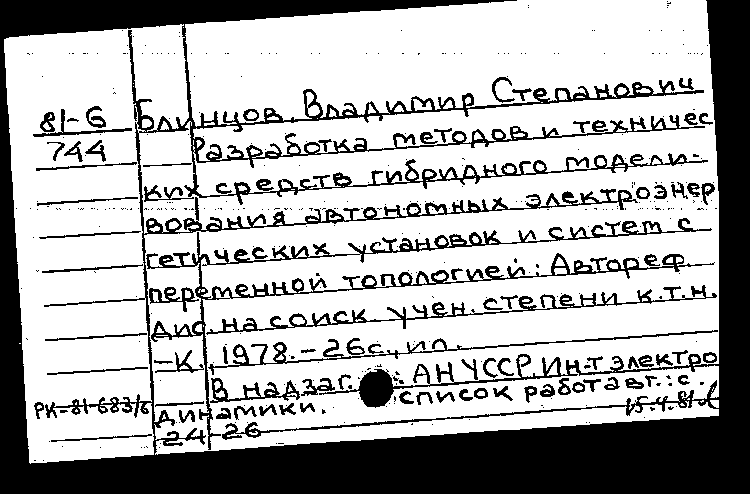 81-6 Блинцов Владимир Степанович
744 Разработка методов и техничес
ких средств гибридного модели-
рования автономных электроэнер
гетических установок и систем с
переменной топологией: Автореф.
Дис. на соиск. учен. степени к.т.н.
-К., 1978.-26с., ил.
В надзаг.: АН УССР. Ин-т электро
динамики. список работ авт.: с.
24-26
РК-81-683/6
15.4.81